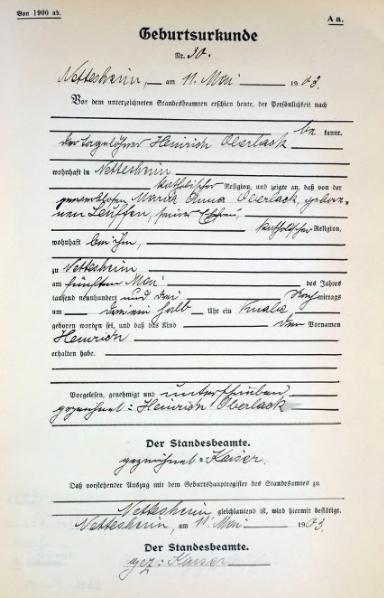 Von 1900 ab.
A a.
Geburtsurkunde
Nr. 30.
Nettesheim, am 11. Mai 1903.
Vor dem unterzeichneten Standesbeamten erschien heute, der Persönlichkeit nach
be kannt,
der Tagelöhner Heinrich Oberlack
wohnhaft in Nettesheim
katholischer Religion, und zeigte an, daß von der
Maria Anna Oberlack, gebore-
nen seiner Ehefrau,
katholischer Religion,
wohnhaft bei ihm,
zu Nettesheim
am fünften Mai des Jahres
tausend neunhundert und drei mittags
um halb Uhr ein Knabe
geboren worden sei, und daß das Kind den Vornamen
Heinrich
erhalten habe.
Vorgelesen, genehmigt und unterschrieben
gezeichnet: Heinrich Oberlack
Der Standesbeamte.
gezeichnet: Kaiser.
Daß vorstehender Auszug mit dem Geburtshauptregister des Standesamtes zu
Nettesheim gleichlautend ist, wird hiermit bestätigt.
Nettesheim, am 11. Mai 1903.
Der Standesbeamte.
gez: Kaiser